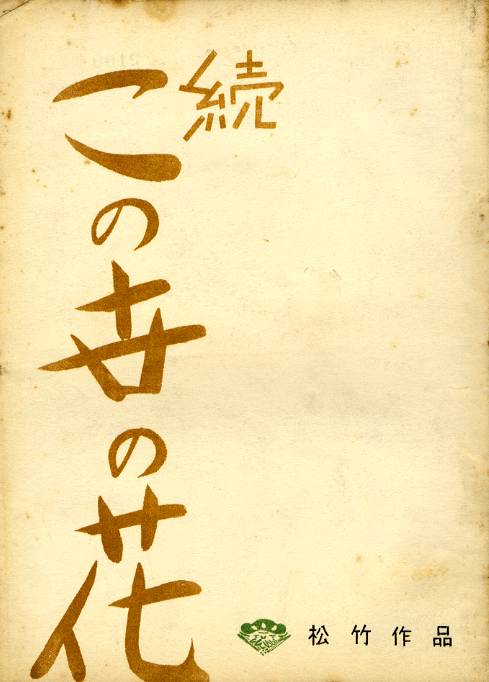 続
この世の花
松竹作品